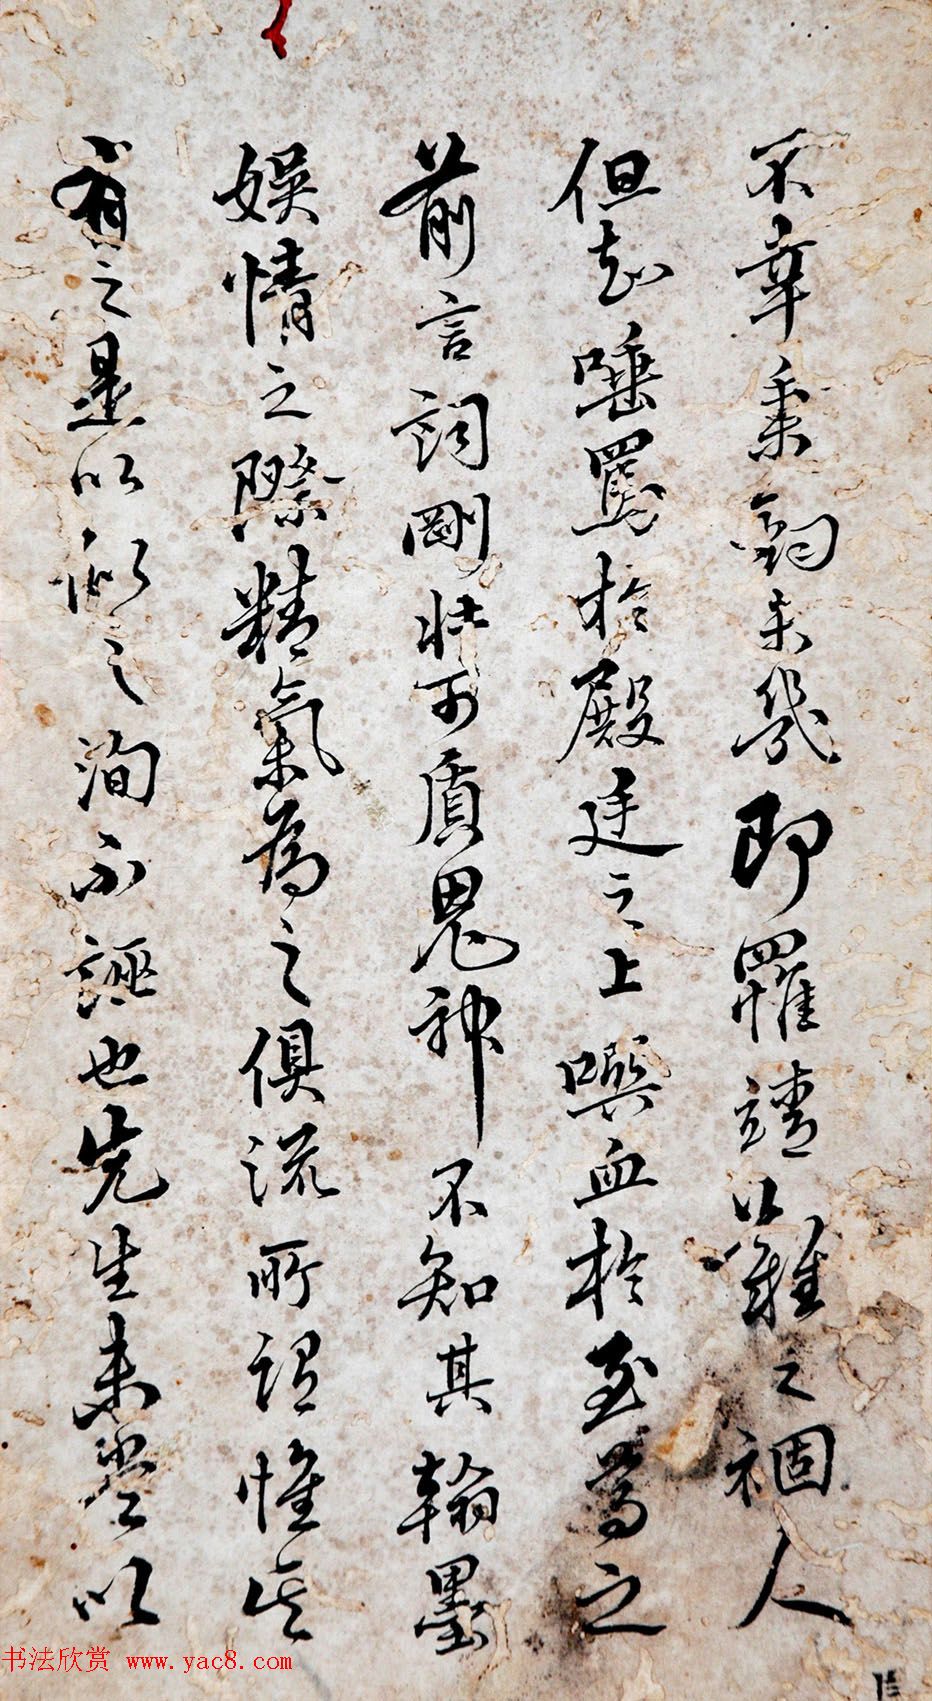 不幸秉鈞未幾即罹靖難之禍人
但知唾罵於殿廷之上噀血於至尊之
前言詞剛壯可質鬼神不知其翰墨
娛情之際精氣為之俱流所謂惟其
有之是以似之洵不誣也先生未嘗以
书法欣赏 www.yac8.com